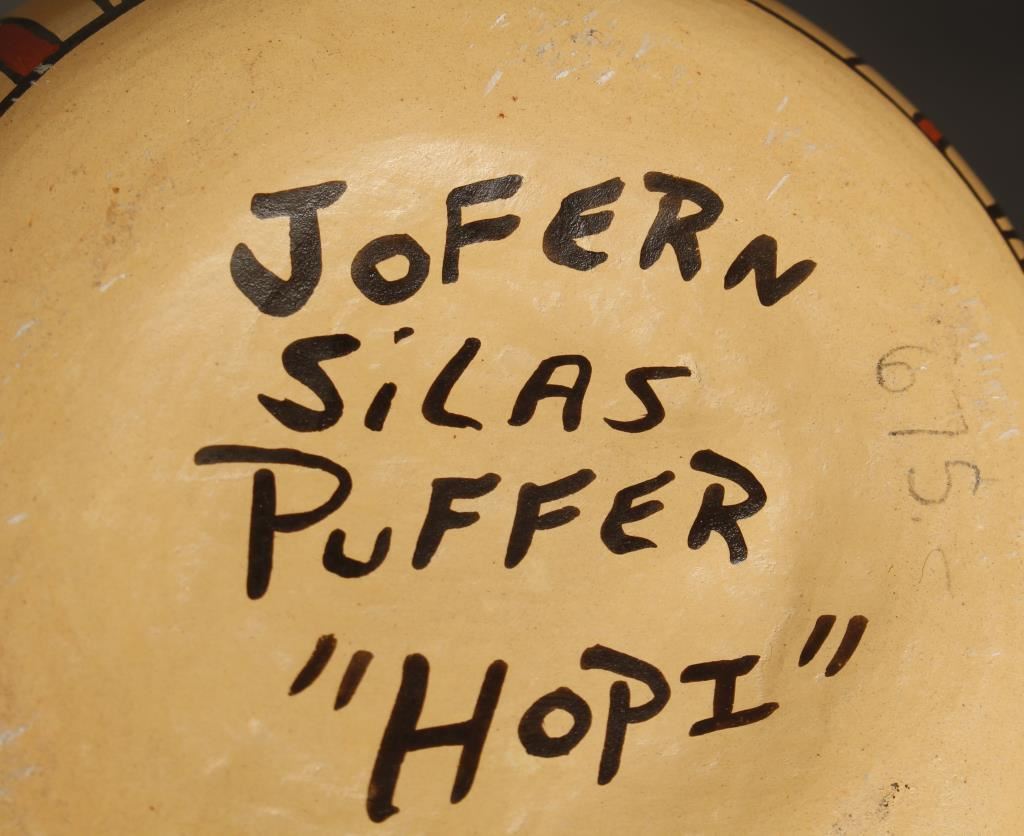 JOFERN
SiLAS
PUFFER
"HOPI"
675